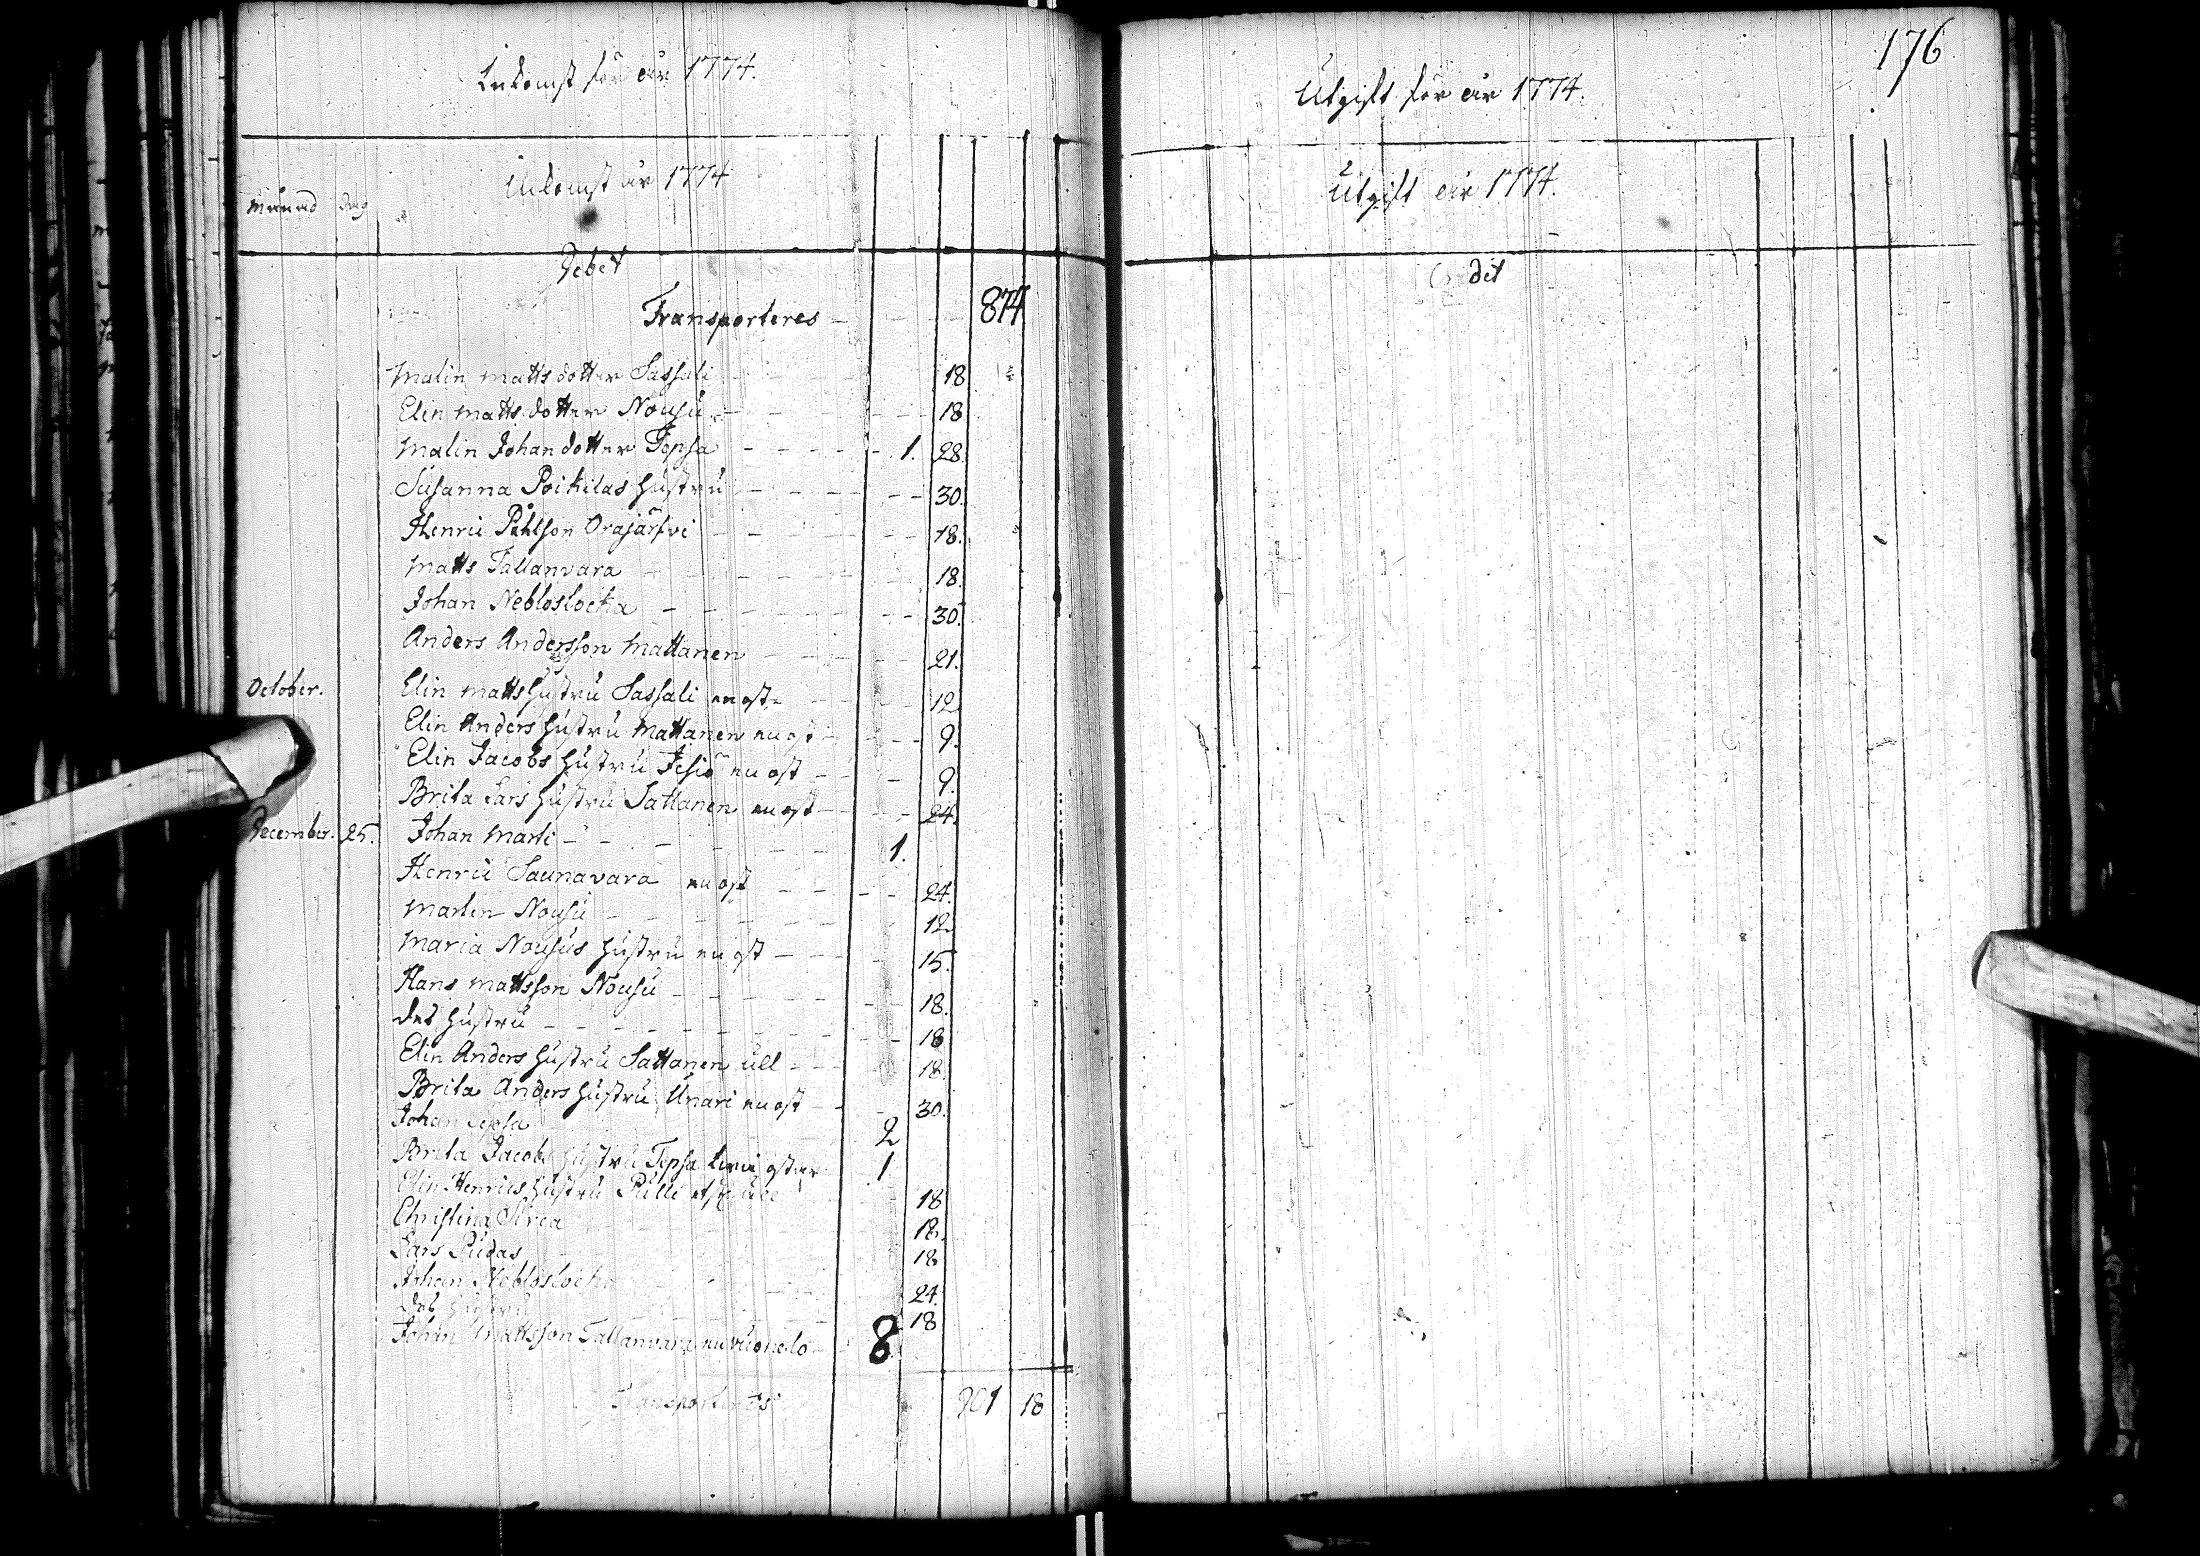 Inkomst för år 1774.
Inkomst år 1774
månad dag
Debet
Transporteres 874
Malin Matts dotter Sassali 18
Elin Matts dotter Nousu 18
Malin Johan dotter Tepsa 1. 28.
Susanna Poikilas hustru 30.
Henric Påhlson Orajärfvi 18.
Matts Tallanvara 18.
Johan Nebloslocka 30.
Anders Andersson Mattanen 21.
October. Elin Matts hustru Sassali en ost 12.
Elin Anders hustru Mattanen en ost 9.
Elin Jacobs hustru Jesiö en ost 9.
Brita Lars hustru Sattanen en ost 24.
December. 25. Johan Marti 1.
Henric Saunavara en ost 24.
Marten Nousu 12.
Maria Nousus hustru en ost 15.
Hans Mattsson Nousu 18.
des hustru 18
Elin Anders hustru Sattanen ull 18.
Brita Anders hustru Unari en ost 30.
Johan Tepsa 2
Brita Jacobs hustru Tepsa ostar 1
Elin Henrics hustru Pulli ull 18
Christina Sirca 18.
Lars Pudas 18
Johan Nebloslocka 24.
des hustru 18
Johan Mattsson Tallanvara en 8
Transporteres 901 18
176
Utgift för år 1774.
Utgift år 1774.
Credit